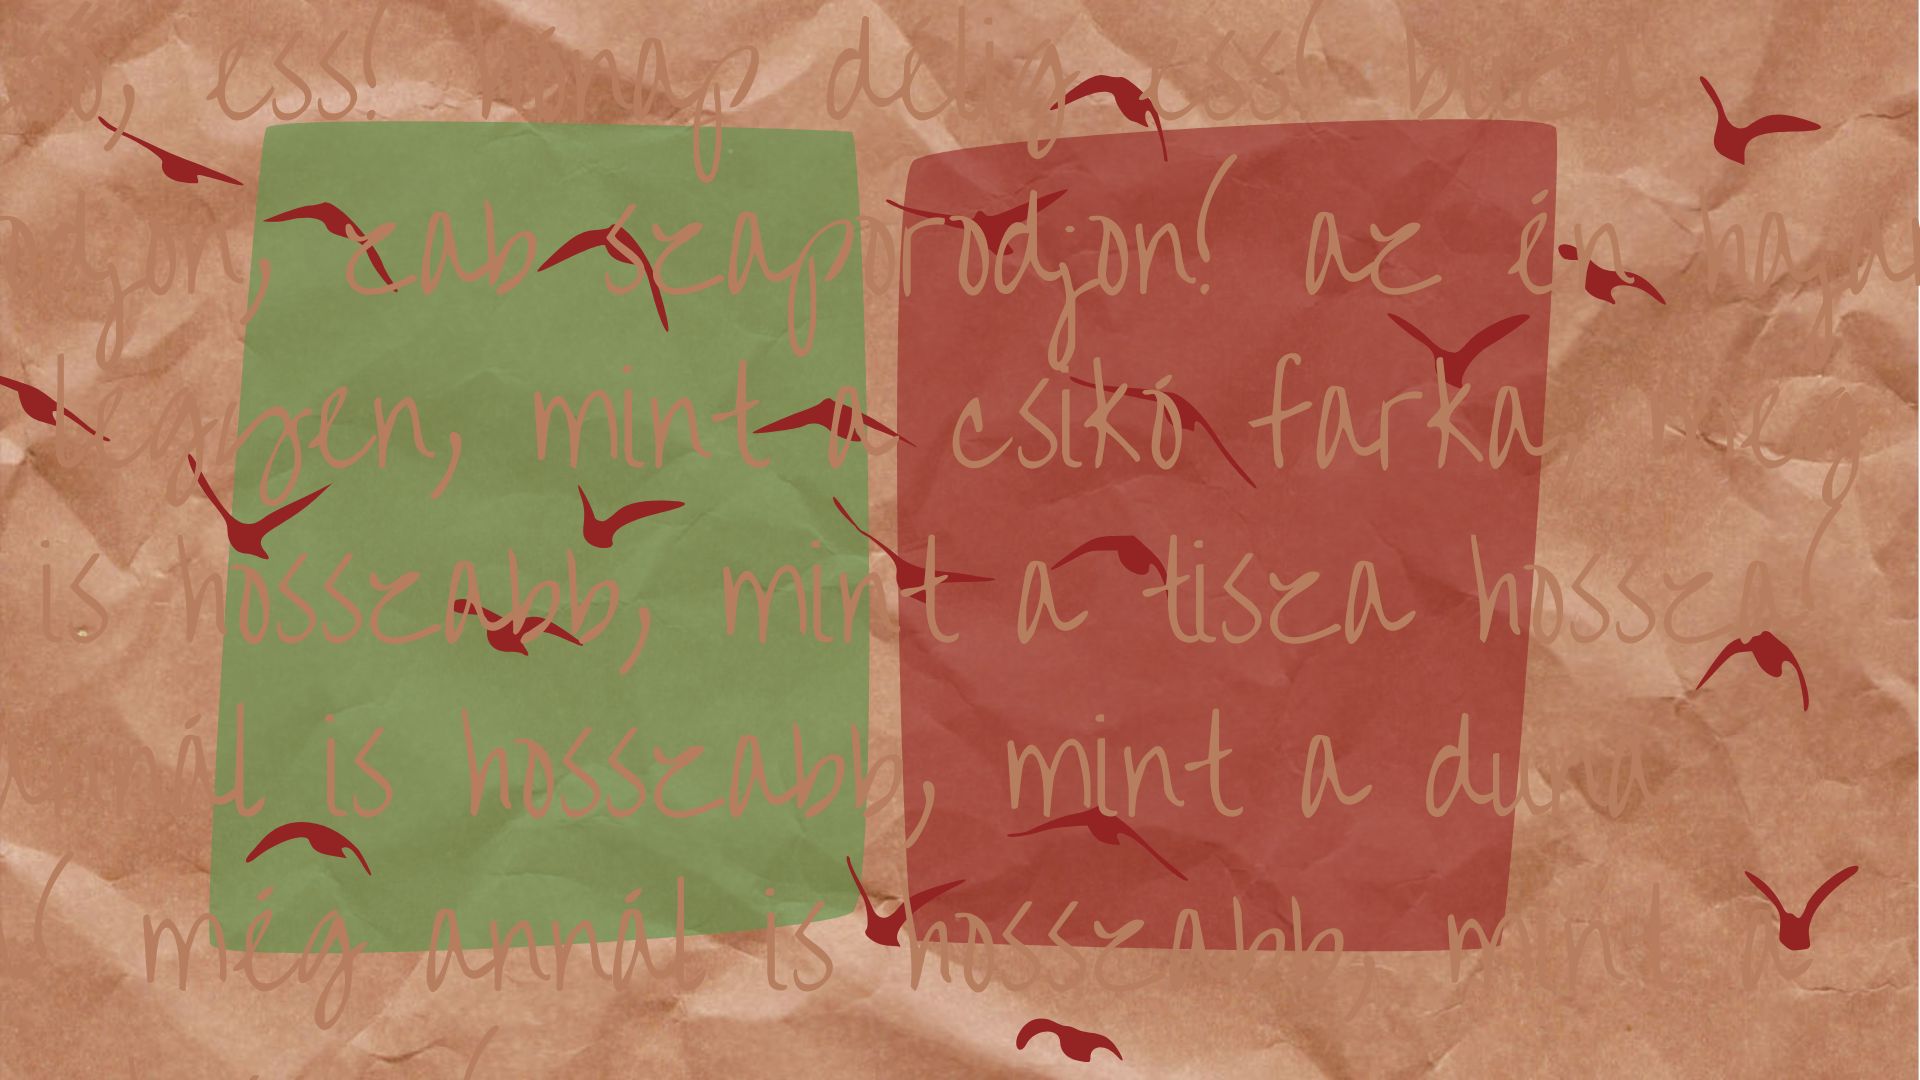 ess! hónap délig ess! búza
zab szaporodjon! az én hajam
legyen, mint a csikó farka, még
is hosszabb, mint a tisza hossza!
annál is hosszabb, mint a duna
! még annál is hosszabb, mint a